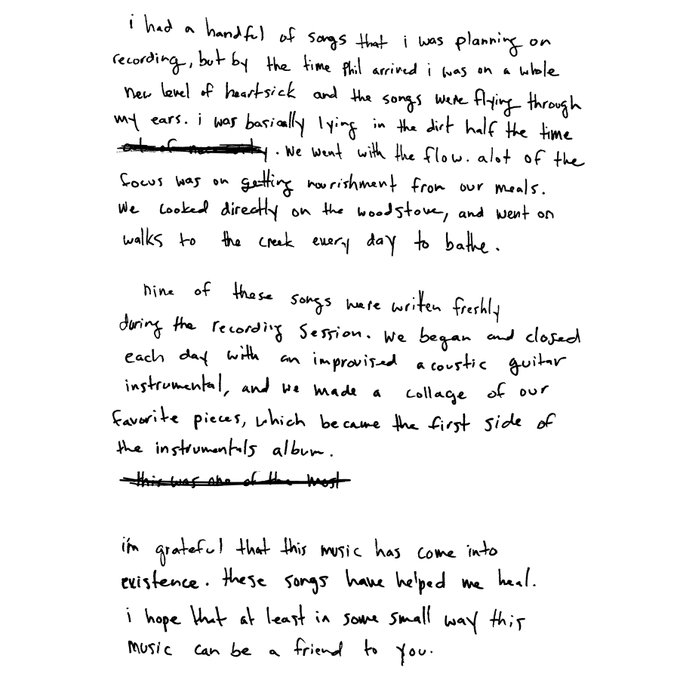 i had a handful of songs that i was planning on
recording, but by the time Phil arrived i was on a whole
new level of heartsick and the songs were flying through
my ears. i was basically lying in the dirt half the time
. we went with the flow. alot of the
focus was on getting nourishment from our meals.
we cooked directly on the woodstove, and went on
walks to the creek every day to bathe.
nine of these songs were written freshly
during the recording session. we began and closed
each day with an improvised acoustic guitar
instrumental, and we made a collage of our
favorite pieces, which became the first side of
the instrumentals album.
this was one of the most
i'm grateful that this music has come into
existence. these songs have helped me heal.
i hope that at least in some small way this
music can be a friend to you.